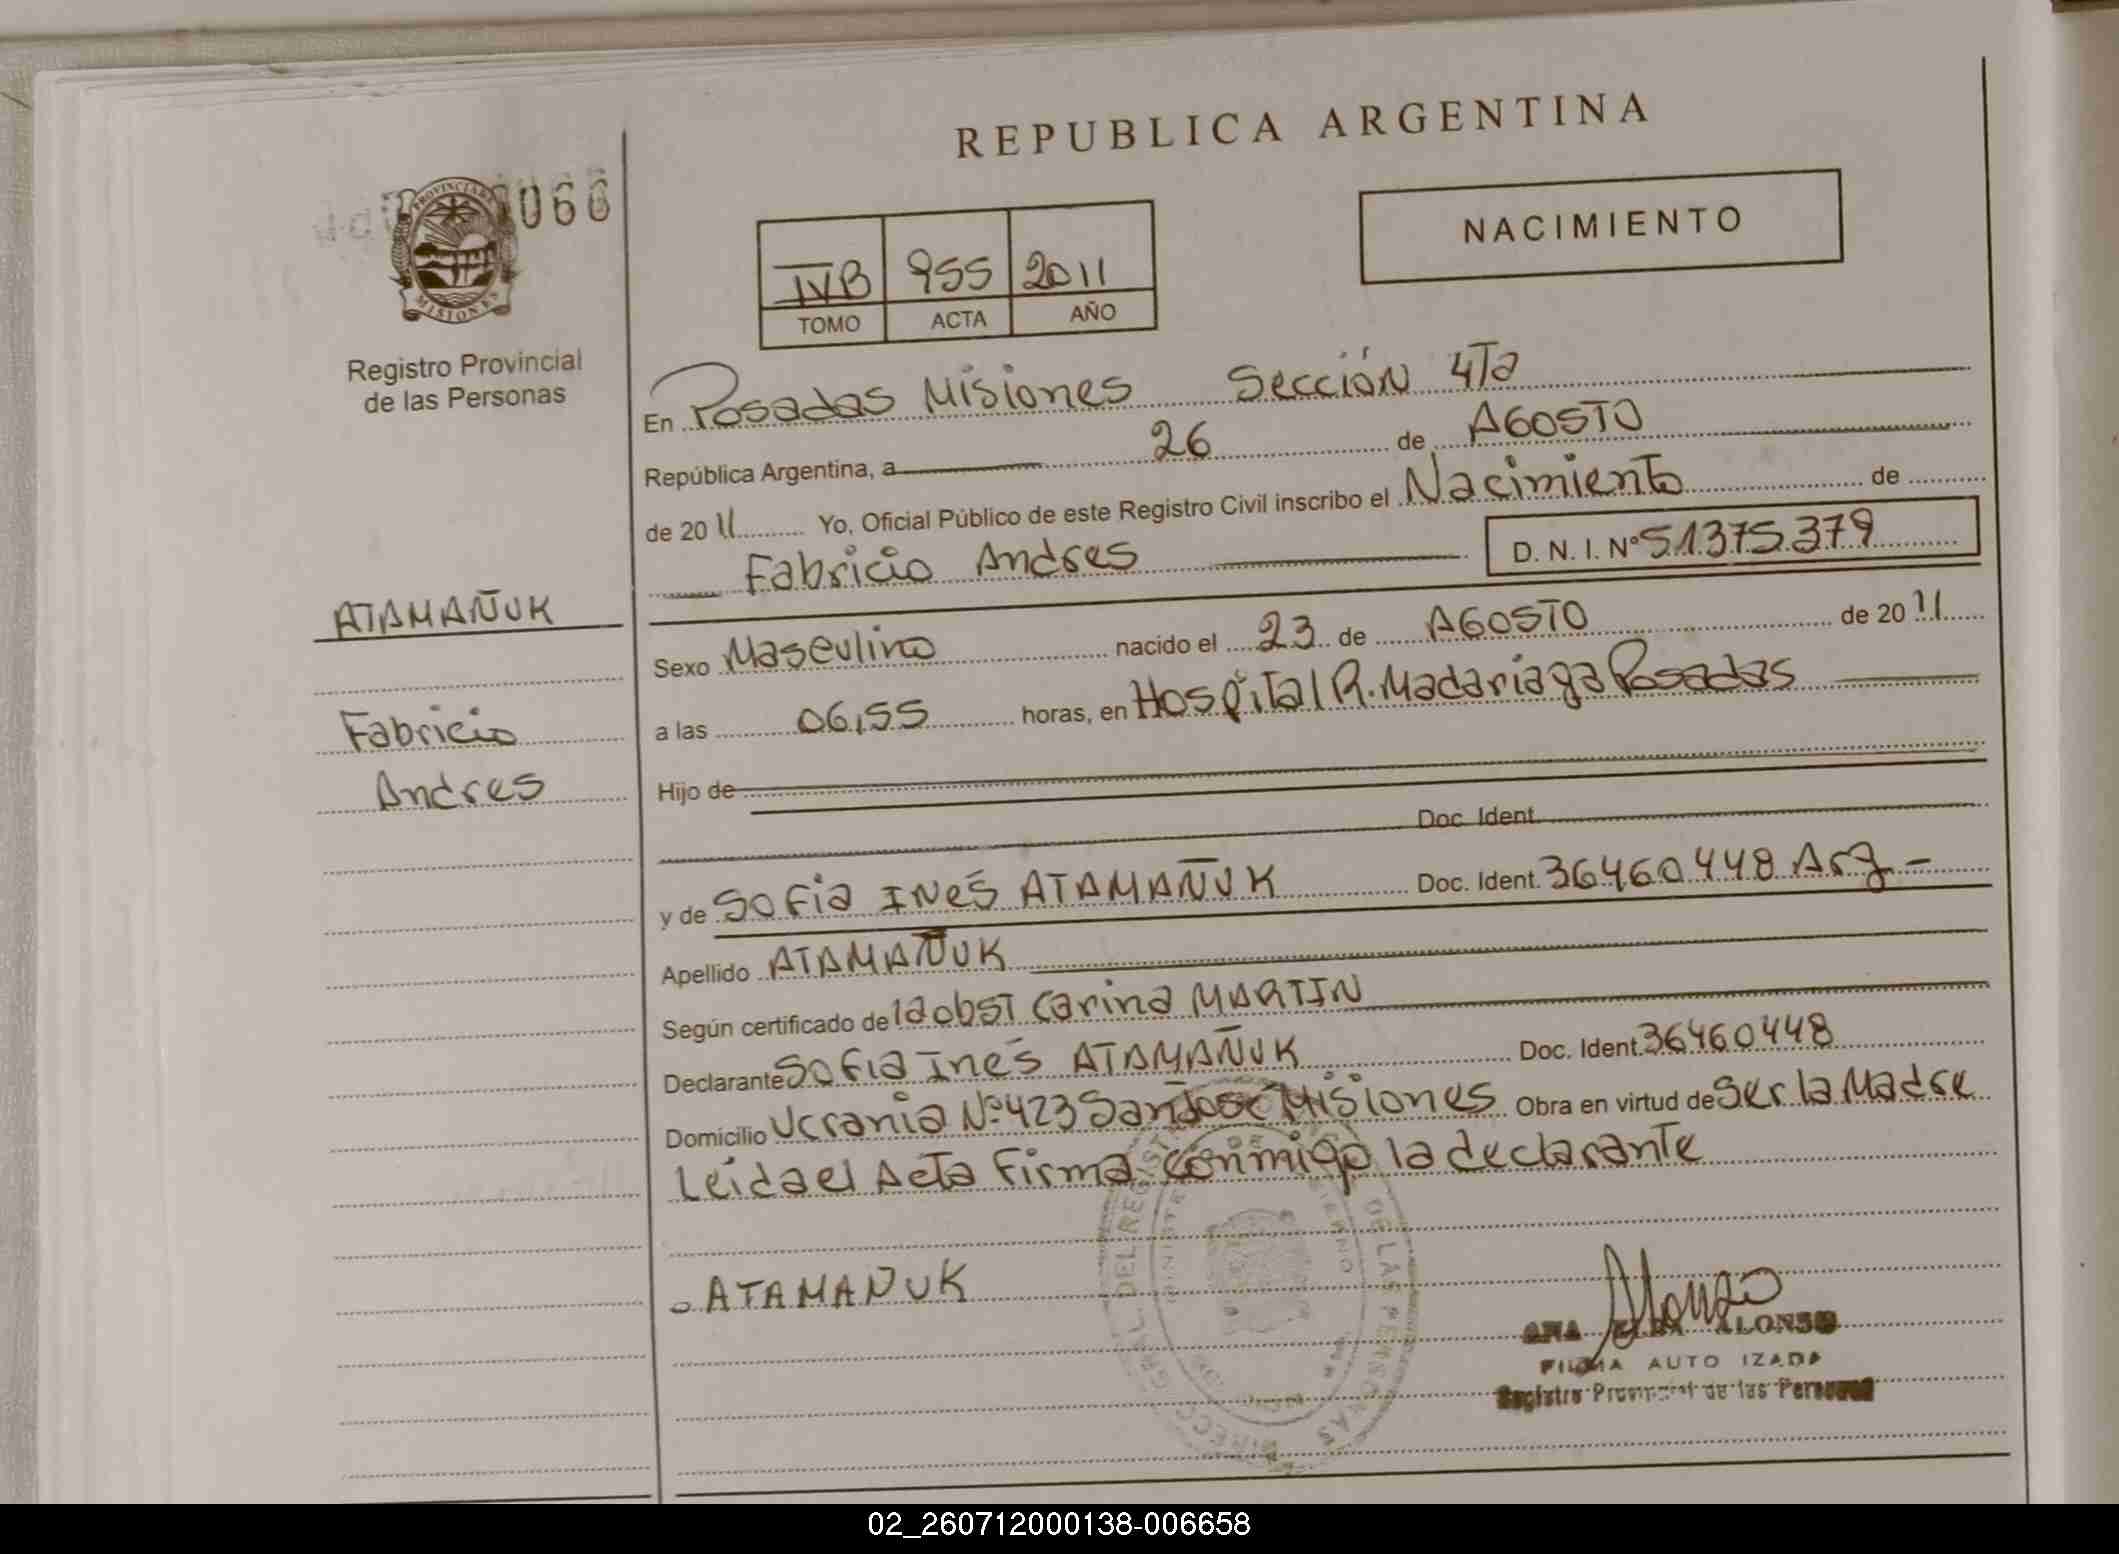 REPUBLICA ARGENTINA
066
PROVINCIA DE
MISIONES
Registro Provincial
de las Personas
NACIMIENTO
IVB 955 2011
TOMO ACTA AÑO
En Posadas Misiones Sección 4Ta
República Argentina, a 26 de AGOSTO
de 2011 Yo, Oficial Público de este Registro Civil inscribo el Nacimiento de
Fabricio Andres D.N.I. Nº 51375379
ATAMAÑUK
Fabricio
Andres
Sexo Masculino nacido el 23 de AGOSTO de 2011
a las 06,55 horas, en Hospital R. Madariaga Posadas
Hijo de
Doc. Ident.
y de Sofia Inés ATAMAÑUK Doc. Ident. 36460448 Arg -
Apellido ATAMAÑUK
Según certificado de la obst Carina MARTIN
Declarante Sofia Inés ATAMAÑUK Doc. Ident. 36460448
Domicilio Ucrania Nº 423 San José Misiones Obra en virtud de Ser la Madre
Leida el Acta Firma conmigo la declarante
ATAMAÑUK
Alonso
ANA ELBA ALONSO
FIRMA AUTORIZADA
Registro Provincial de las Personas
02_260712000138-006658